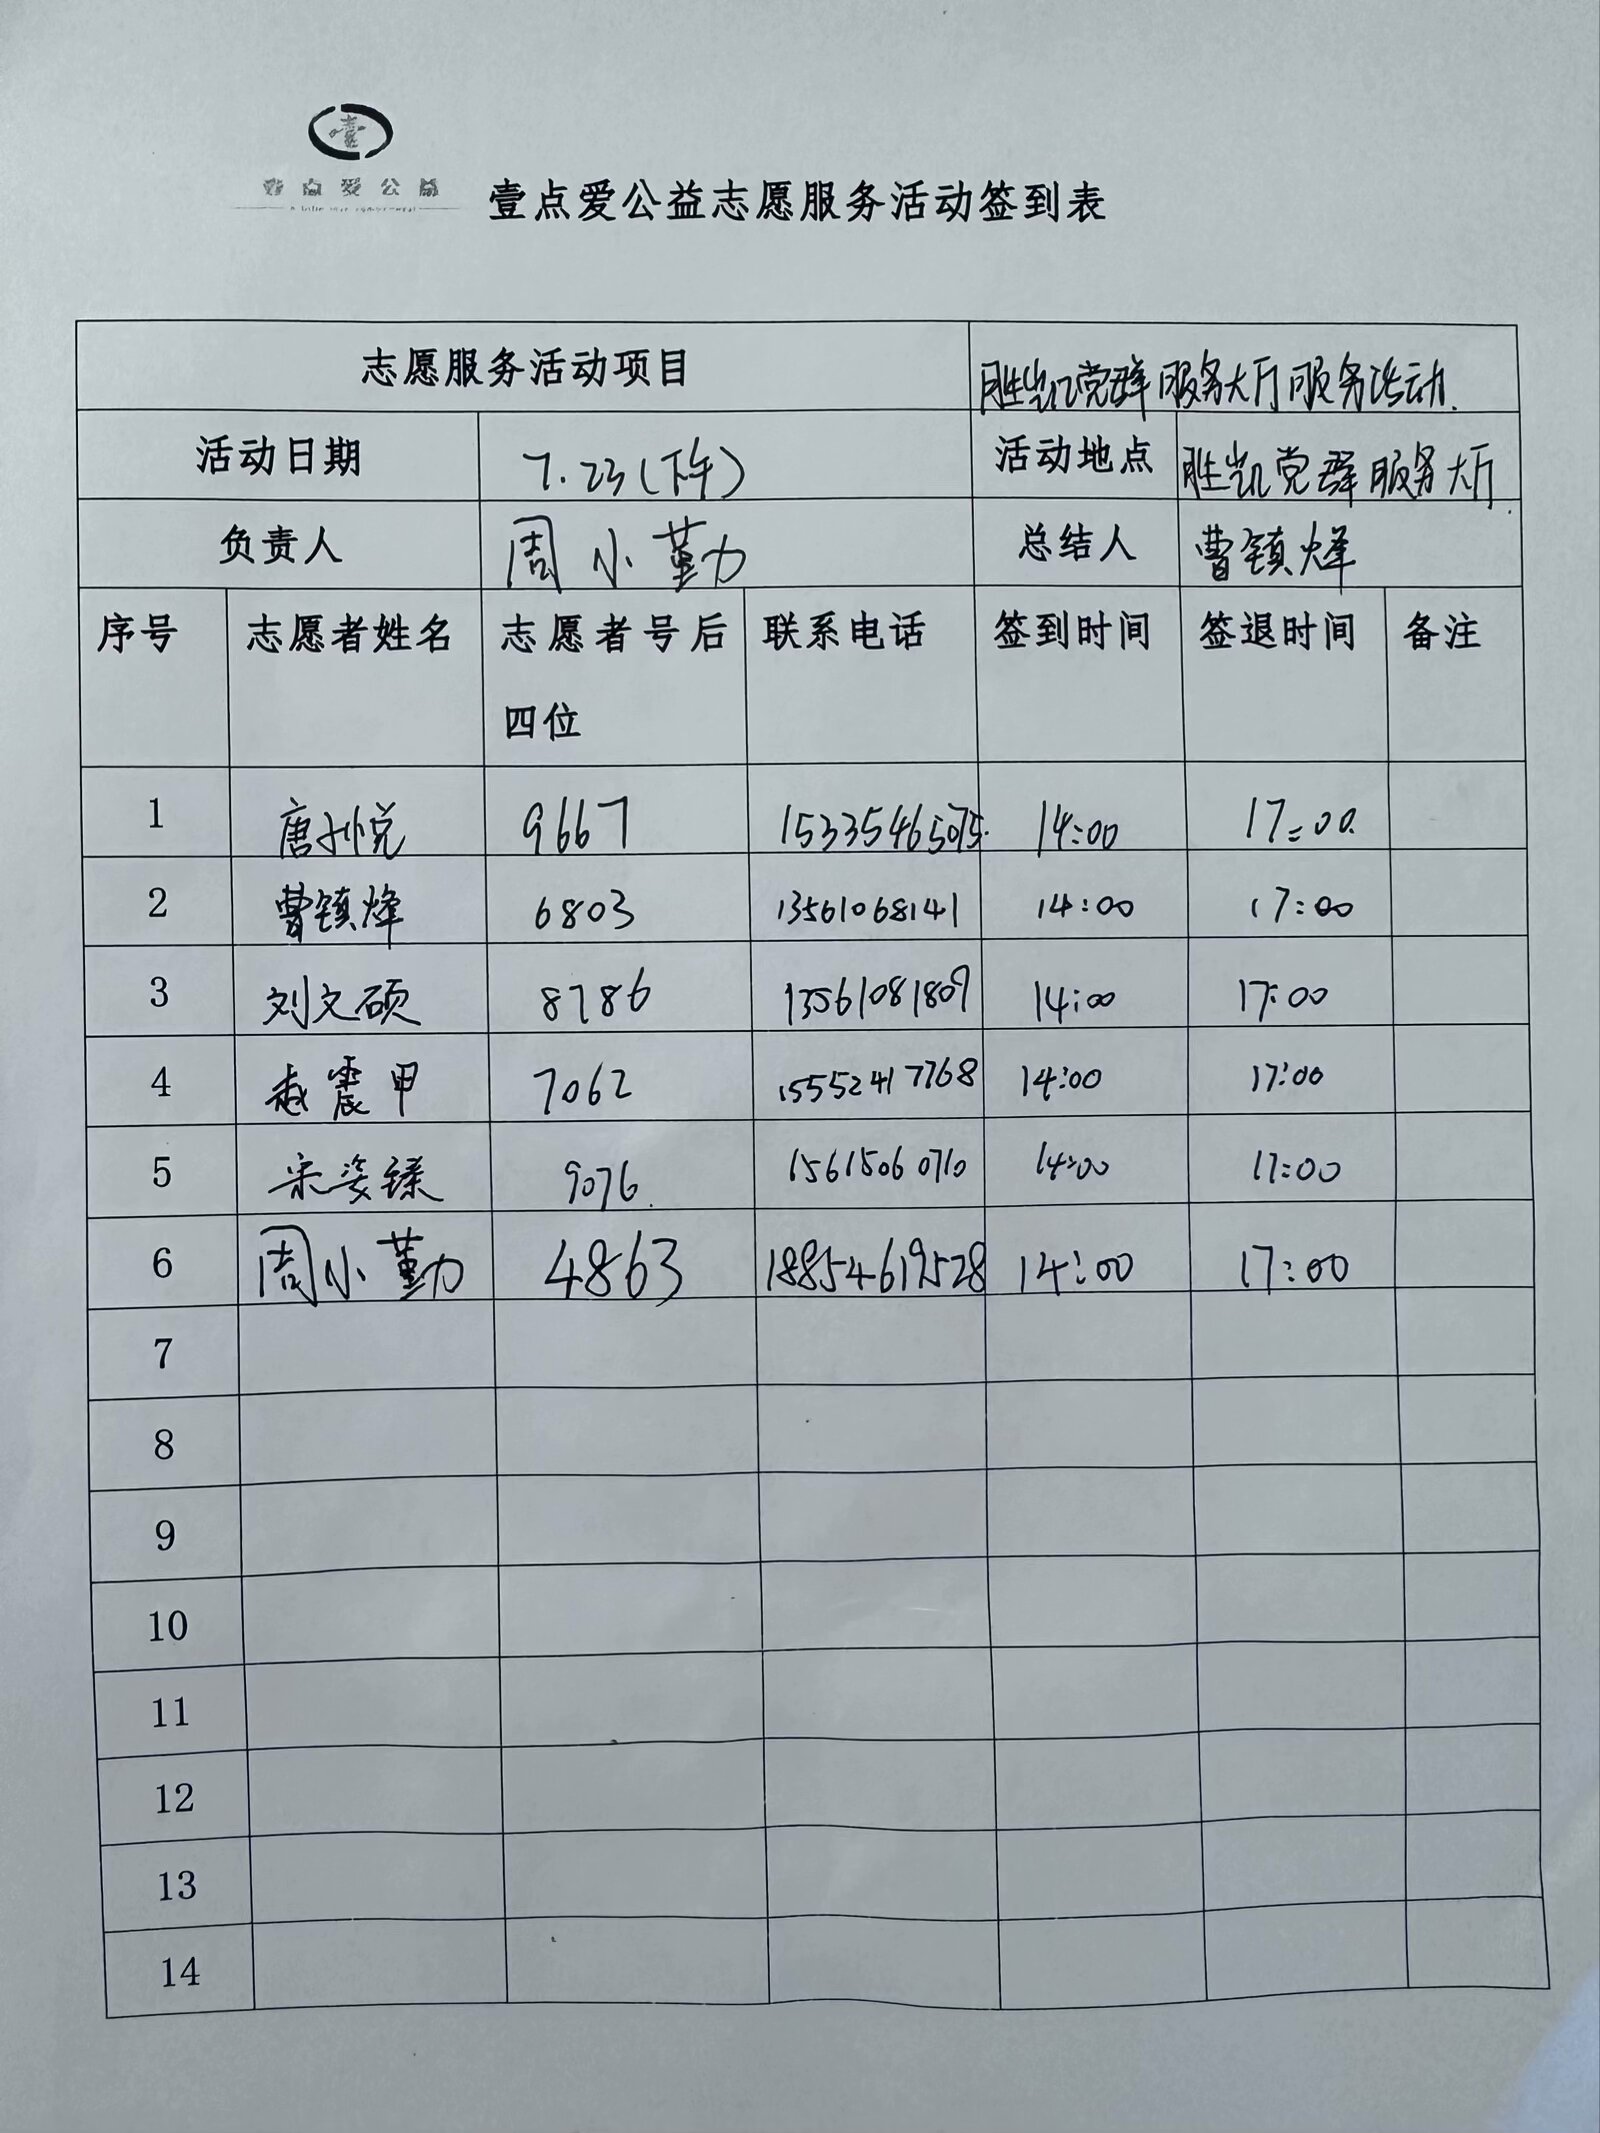 壹点爱公益
壹点爱公益志愿服务活动签到表
志愿服务活动项目 胜凯党群服务大厅服务活动.
活动日期 7.23(下午) 活动地点 胜凯党群服务大厅
负责人 周小勤 总结人 曹镇烽
序号 志愿者姓名 志愿者号后 联系电话 签到时间 签退时间 备注
四位
1 唐 悦 9667 15335465075. 14:00 17:00.
2 曹镇烽 6803 13561068141 14:00 17:00
3 刘文硕 8786 13561081809 14:00 17:00
4 赵震甲 7062 15552417768 14:00 17:00
5 宋姿臻 9076. 15615060710 14:00 17:00
6 周小勤 4863 18854619528 14:00 17:00
7
8
9
10
11
12
13
14